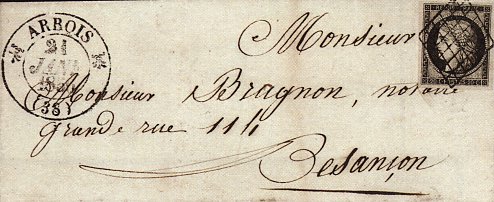 ARBOIS
21
JANV.
(38)
Monsieur
Monsieur Bragnon, notaire
Grande rue 114
Besançon